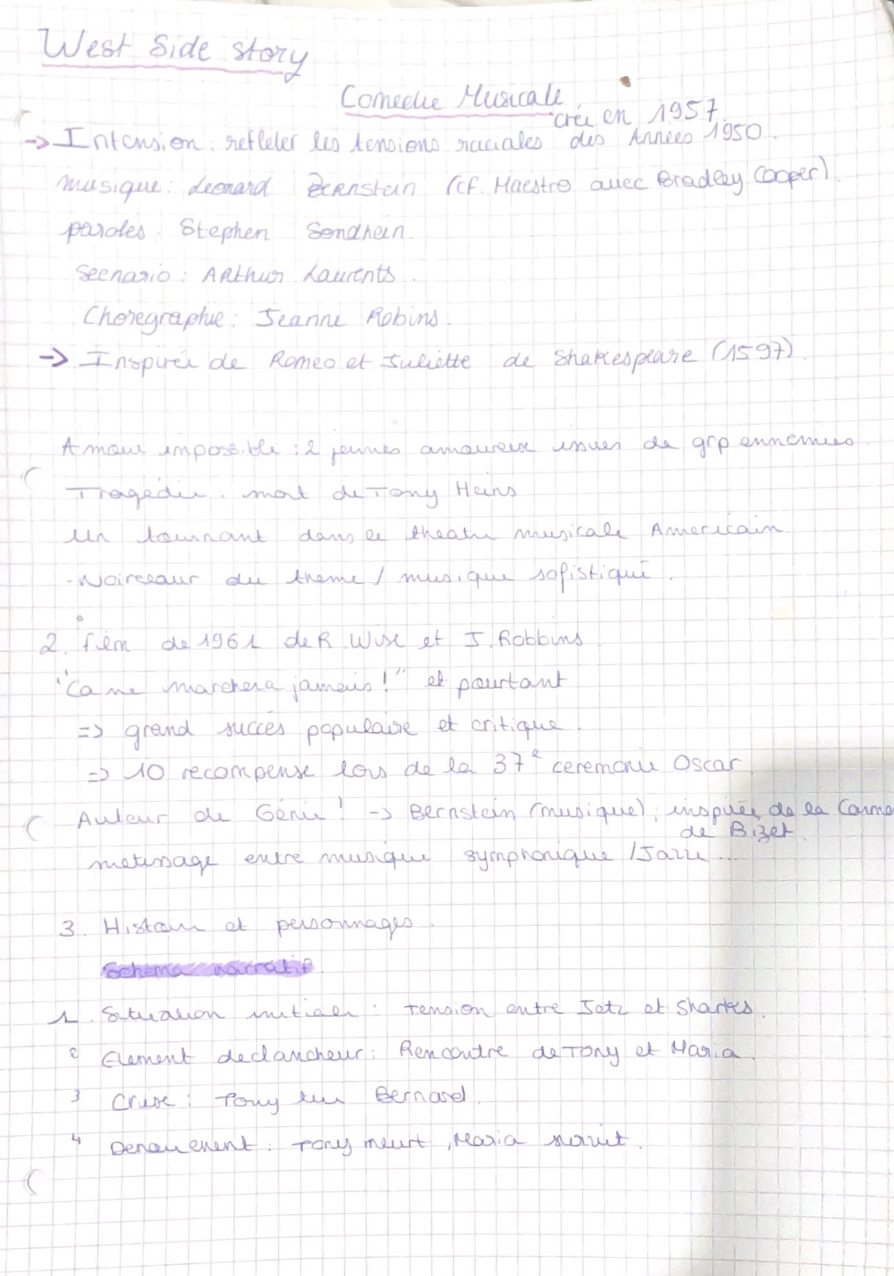 West Side story
Comedie Musicale
créé en 1957
→ Intension : refleter les tensions raciales des Années 1950.
musique : Leonard Bernstein (cf. Maestro avec Bradley Cooper).
paroles : Stephen Sondhein.
Scenario : Arthur Laurents.
Choregraphie : Jeanne Robins.
→ Inspirée de Romeo et Juliette de Shakespeare (1597).
Amour impossible : 2 jeunes amoureux issues de grp ennemies.
Tragédie : mort de Tony Heins
Un tournant dans le theatre musicale Americain
- Noirceaur du theme / musique sofistiqué.
2. film de 1961 de R. Wise et J. Robbins
"Ca ne marchera jamais !" et pourtant
=> grand succès populaire et critique.
=> 10 recompense lors de la 37e ceremonie Oscar
Auteur de Génie ! -> Bernstein (musique) ; inspirée de la Carme
de Bizet.
metissage entre musique symphonique / Jazz ...
3. Histoire et personnages.
Schema narratif
1. Situation initiale : Tension entre Jetz et Sharkes.
2 Element declancheur : Rencontre de Tony et Maria.
3 Crise : Tony tue Bernard.
4 Denouement : Tony meurt, Maria survit.